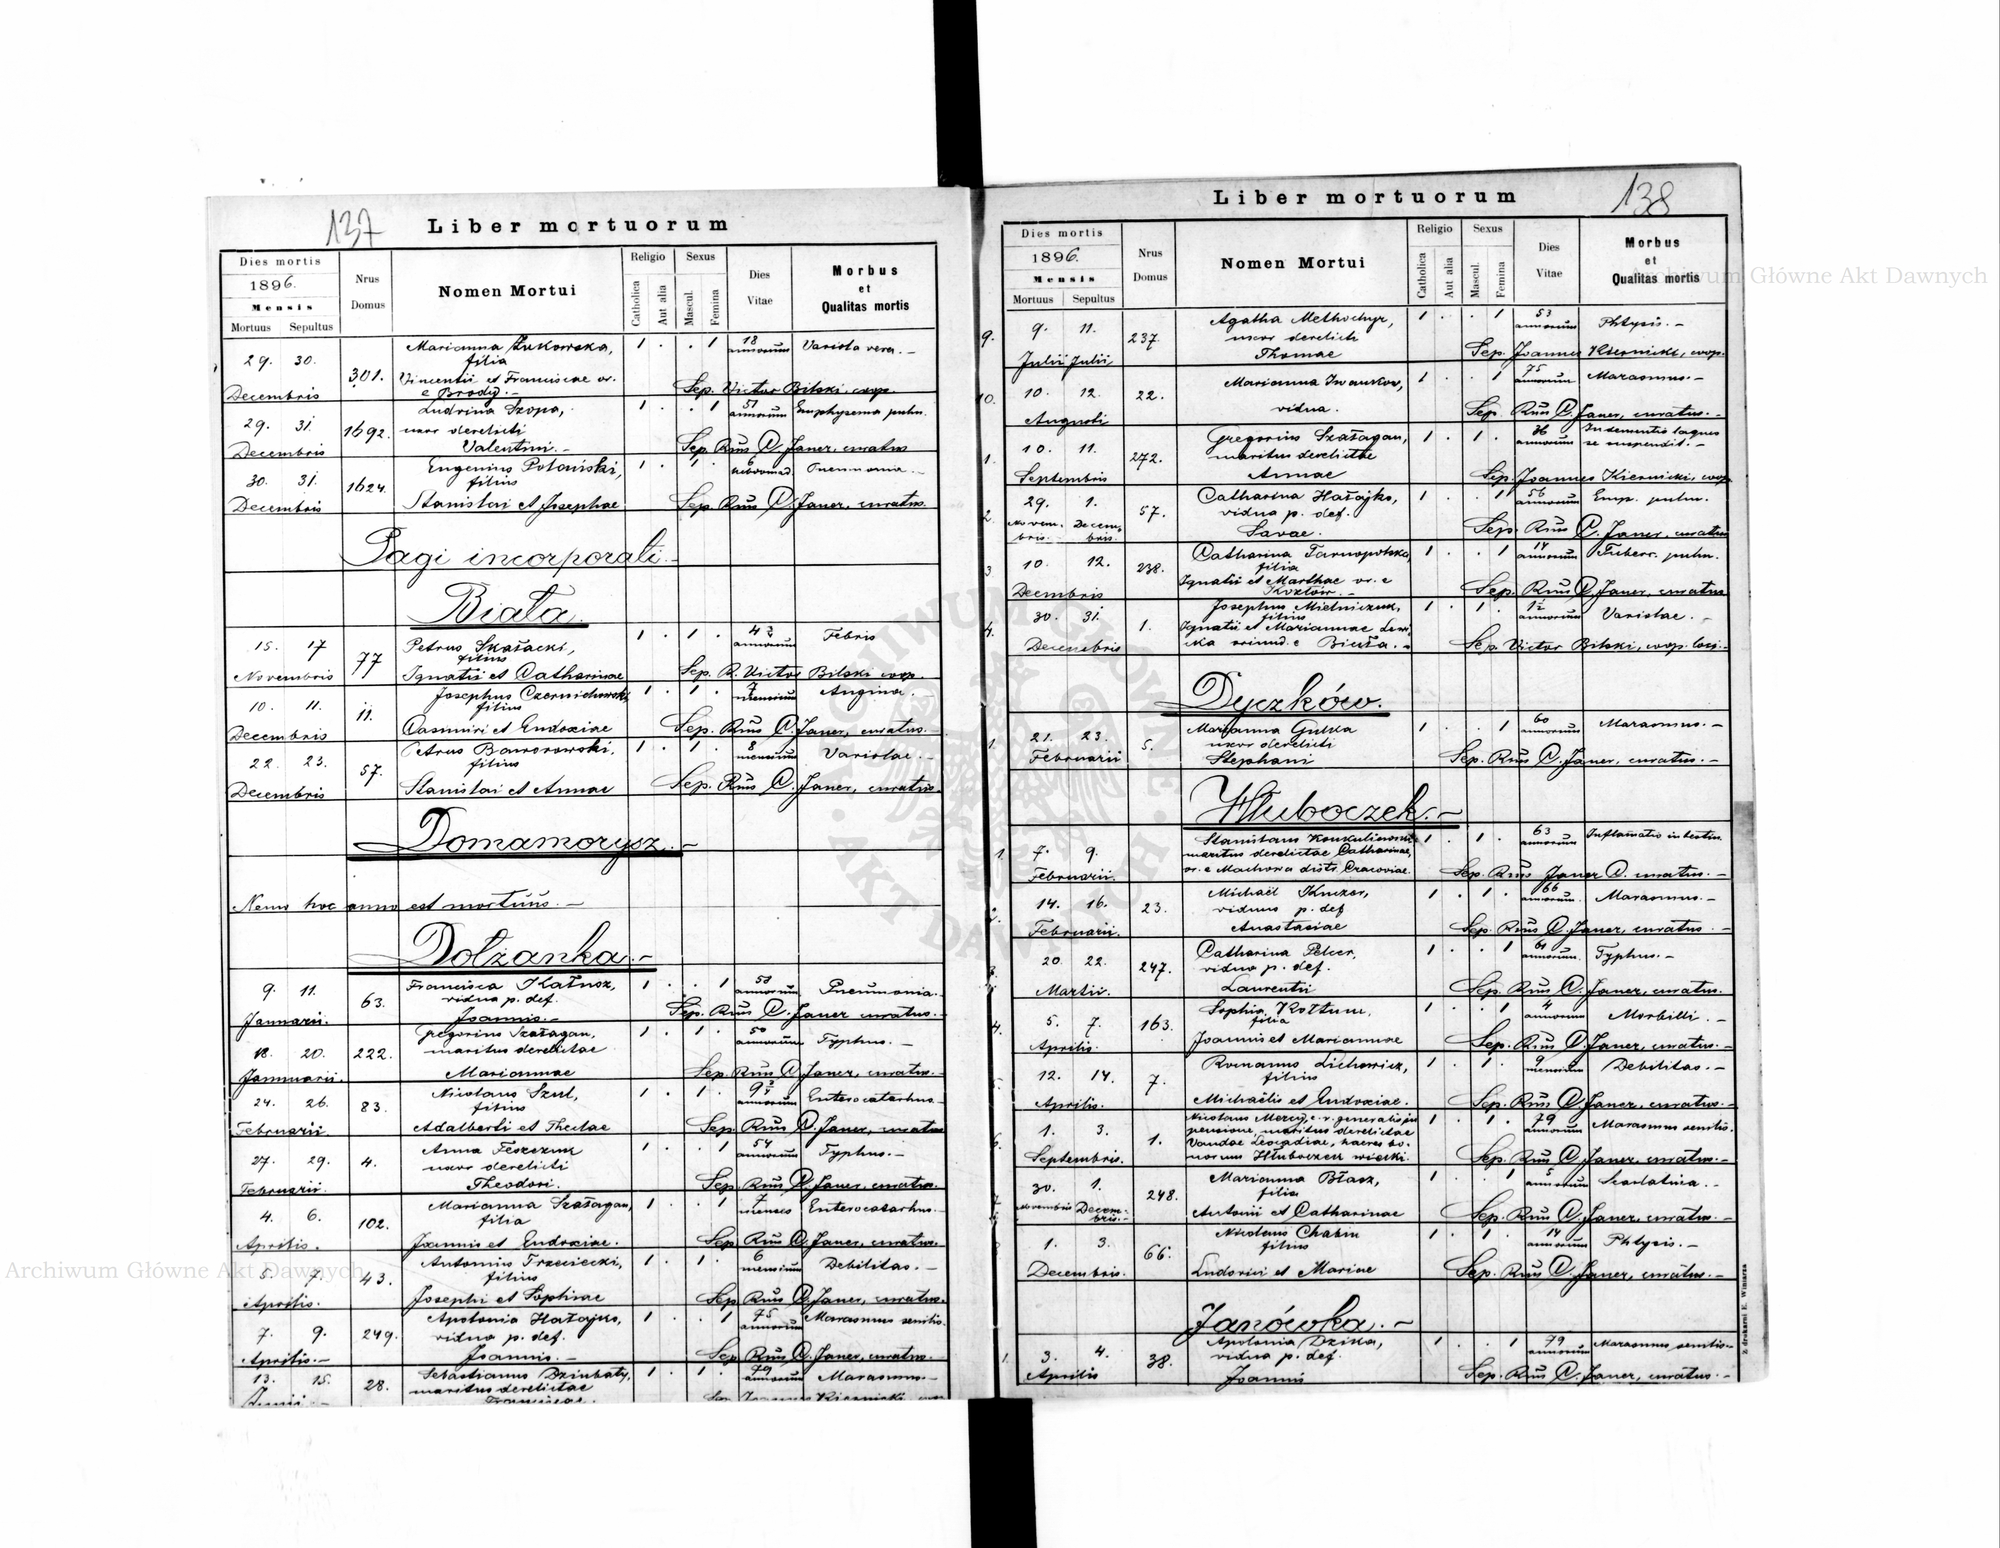 137
Liber mortuorum
Dies mortis
1896.
Mensis
Mortuus Sepultus
Nrus
Domus
Nomen Mortui
Religio
Catholica
Aut alia
Sexus
Mascul.
Femina
Dies
Vitae
Morbus
et
Qualitas mortis
29. 30. Decembris 301. Marianna Żukowska, 1 . . 1 18 annorum Variola vera. -
filia
Vincentii et Franciscae or. Sep. Victor Bilski, coop.
e Brody. -
29. 31. Decembris 1692. Ludvina Szopa, 1 . . 1 51 annorum Emphysema pulm.
uxor derelicti
Valentini. - Sep. Rms C. Janer, curatus
30. 31. Decembris 1624. Eugenius Potoński, 1 . 1 . 6 hebdomad. Pneumonia. -
filius
Stanislai et Josephae Sep. Rms C. Janer, curatus.
Pagi incorporati. -
Biała.
15. 17 Novembris 77 Petrus Skałacki, 1 . 1 . annorum Febris
filius
Ignatii et Catharinae Sep. R. Victor Bilski coop.
10. 11. Decembris 11. Josephus Czernichowski, 1 . 1 . 7 mensium Angina. -
filius
Casimiri et Eudoxiae Sep. Rms C. Janer, curatus.
22. 23. Decembris 57. Petrus Baworowski, 1 . 1 . 8 mensium Variolae. -
filius
Stanislai et Annae Sep. Rms C. Janer, curatus.
Domamorysz. -
Nemo hoc anno est mortuus. -
Dołżanka. -
9. 11. Januarii. 63. Francisca Kałusz, 1 . . 1 58 annorum Pneumonia.
vidua p. def.
Joannis. - Sep. Rms C. Janer curatus. -
18. 20. Januarii. 222. Gregorius Szałagan, 1 . 1 . 50 annorum Typhus. -
maritus derelictae
Mariannae Sep. Rms C. Janer, curatus. -
24. 26. Februarii 83. Nicolaus Szul, 1 . 1 . annorum Enterocatarhus. -
filius
Adalberti et Theclae Sep. Rms C. Janer, curatus
27. 29. Februarii. 4. Anna Teszczuk 1 . . 1 54 annorum Typhus. -
uxor derelicti
Theodori. Sep. Rms C. Janer, curatus.
4. 6. Aprilis. 102. Marianna Szałagan, 1 . . 1 7 menses Enterocatarhus. -
filia
Joannis et Eudoxiae. Sep. Rms C. Janer, curatus.
5. 7. Aprilis. 43. Antonius Trzeciecki, 1 . 1 . 6 mensium Debilitas. -
filius
Josephi et Sophiae Sep. Rms C. Janer, curatus.
7. 9. Aprilis. - 249. Apolonia Hałajko, 1 . . 1 75 annorum Marasmus senilis.
vidua p. def.
Joannis. - Sep. Rms C. Janer, curatus.
13. 15. Junii 28. Sebastianus Dziubaty, 1 . 1 . 79 annorum Marasmus. -
maritus derelictae
Franciscae. Sep. Joannes Kiernicki, coop.
138
Liber mortuorum
Dies mortis
1896.
Mensis
Mortuus Sepultus
Nrus
Domus
Nomen Mortui
Religio
Catholica
Aut alia
Sexus
Mascul.
Femina
Dies
Vitae
Morbus
et
Qualitas mortis
9. 9. 11. Julii Julii 237. Agatha Methochyr, 1 . . 1 53 annorum Phtysis. -
uxor derelicti
Thomae Sep. Joannes Kiernicki, coop.
10. 10. 12. Augusti 22. Marianna Iwankow, 1 . . 1 75 annorum Marasmus. -
vidua. Sep. Rms C. Janer, curatus. -
1. 10. 11. Septembris 272. Gregorius Szałagan, 1 . 1 . 36 annorum In dementio laqueo
maritus derelictae se suspendit. -
Annae Sep. Joannes Kiernicki, coop.
2. 29. 1. Novembris. Decembris. 57. Catharina Hałajko, 1 . . 1 56 annorum Emp. pulm.
vidua p. def.
Savae. Sep. Rms C. Janer, curatus
3 10. 12. Decembris 238. Catharina Tarnopolska, 1 . . 1 14 annorum Tuberc. pulm.
filia
Ignatii et Marthae or. e Sep. Rms C. Janer, curatus
Kozłów. -
4. 30. 31. Decembris 1. Josephus Mielniczuk, 1 . 1 . 1½ annorum Variolae. -
filius
Ignatii et Mariannae Lewi-
cka oriund. e Biała. - Sep. Victor Bilski, coop. loci. -
Dyczków.
1. 21. 23. Februarii 5. Marianna Gulka 1 . . 1 60 annorum Marasmus. -
uxor derelicti
Stephani Sep. Rms C. Janer, curatus. -
Hłuboczek. -
1. 7. 9. Februarii. Stanislaus 1 . 1 . 63 annorum Inflamatio intestin.
maritus derelictae Catharinae,
or. e Machowa distr. Cracoviae. Sep. Rms Janer C. curatus. -
2. 14. 16. Februarii. 23. Michaël Kuczer, 1 . 1 . 66 annorum. Marasmus. -
viduus p. def
Anastasiae Sep. Rms C. Janer, curatus. -
3. 20. 22. Martii. 247. Catharina Pelcer, 1 . . 1 61 annorum. Typhus. -
vidua p. def.
Laurentii Sep. Rms C. Janer, curatus.
4. 5. 7. Aprilis. 163. Sophia Kołtun, 1 . . 1 4 annorum Morbilli. -
filia
Joannis et Mariannae Sep. Rms C. Janer, curatus. -
5. 12. 14. Aprilis. 7. Romanus Lichowicz, 1 . 1 . 9 mensium Debilitas. -
filius
Michaëlis et Eudoxiae. Sep. Rms C. Janer, curatus. -
6. 1. 3. Septembris. 1. Nicolaus c. r. generalis in 1 . 1 . 79 annorum Marasmus senilis.
pensione, maritus derelictae
Vandae Leocadiae, haeres bo-
norum Hłuboczek wielki. Sep. Rms C. Janer, curatus. -
7. 30. 1. Novembris Decembris. - 248. Marianna Błasz, 1 . . 1 5 annorum Scarlatina. -
filia
Antonii et Catharinae Sep. Rms C. Janer, curatus. -
1. 3. Decembris. 66. Nicolaus Chabin 1 . 1 . 14 annorum Phtysis. -
filius
Ludovici et Mariae Sep. Rms C. Janer, curatus. -
Janówka. -
1. 3. 4. Aprilis 38. Apolonia Dzika, 1 . . 1 79 annorum Marasmus senilis. -
vidua p. def.
Joannis Sep. Rms C. Janer, curatus. -
Z drukarni E. Winiarza
Archiwum Główne Akt Dawnych
Archiwum Główne Akt Dawnych
ARCHIWUM GŁÓWNE · AKT DAWNYCH ·